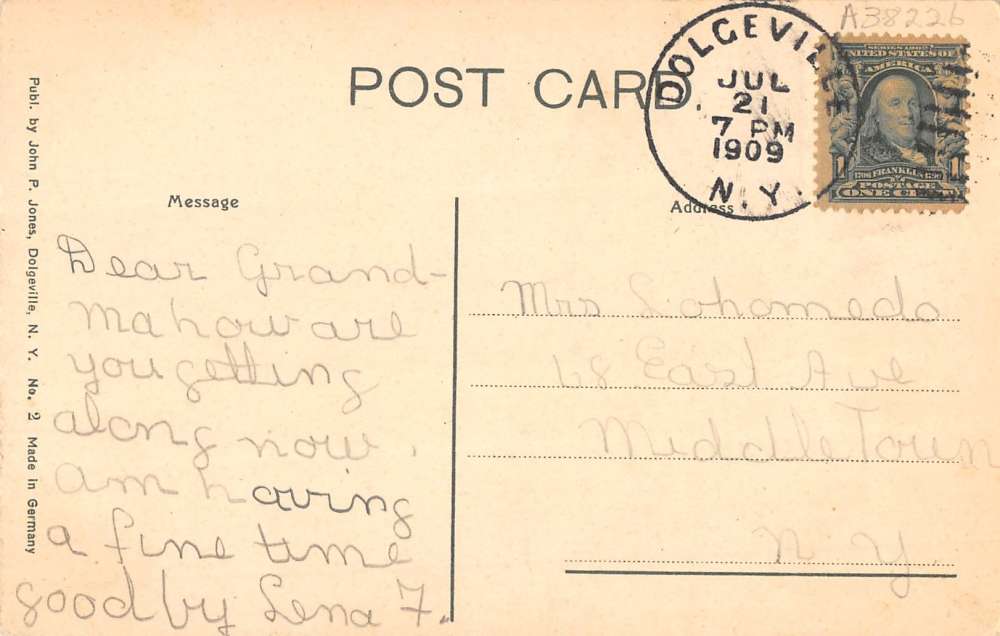 A38226
POST CARD.
DOLGEVILLE
JUL
21
7 PM
1909
N.Y.
SERIES 1902
UNITED STATES OF
AMERICA
1 1
1706 FRANKLIN 1790
POSTAGE
ONE CENT
Publ. by John P. Jones, Dolgeville, N. Y. No. 2 Made in Germany
Message
Address
Dear Grand-
ma how are
you getting
along now.
am having
a fine time
good by Lena F.
Mrs
68 East Ave
MiddleTown
N. Y.